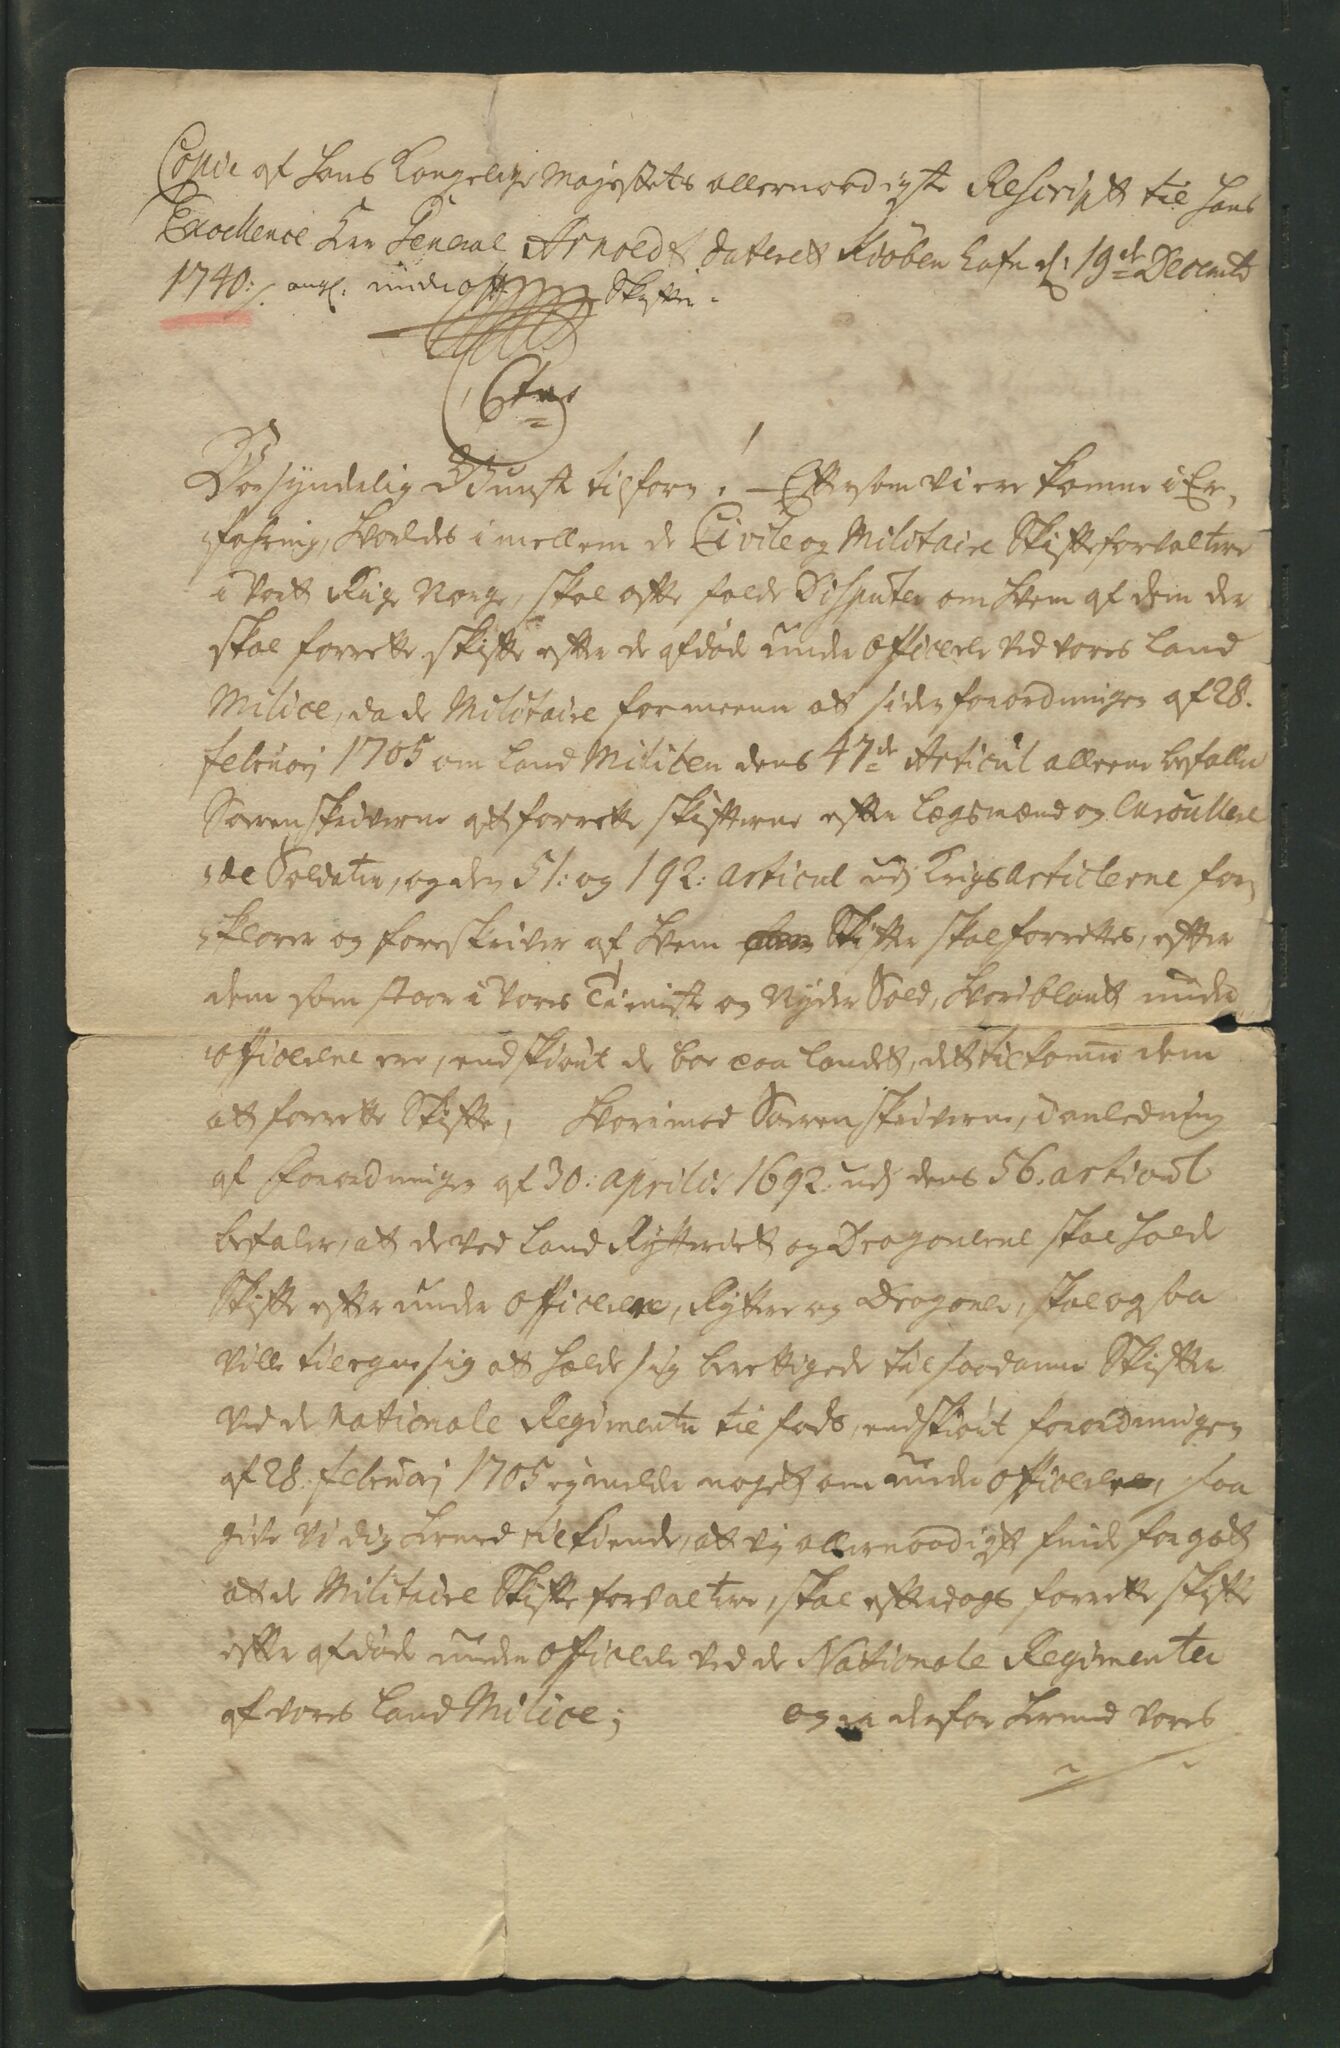 Copie af Hans Kongelige Mayestets allernaadigste Rescript til Hans
Excellence Her General Arnoldt dateret Kiöbenhafn d: 19de Decembr
1740: ang: underoff: Skifter.
Etc
Vor synderlig Gunst tilforn. Eftersom vi ere komne i Er-
fahring, hvorledes imellem de Civile og Militaire Skifteforvaltere
i Vort Rige Norge, skal ofte falde Disputer om hvem af dem der
skal forrette skifte efter de afdöde under Officerer ved vores Land
Milice, da de Militaire formeene at siden forordningen af 28.
februarj 1705 om Land Militzen dens 47de Articul alleene befaller
Sorenskriverne at forrette skifterne efter Lægsmænd og Enroullere
de Soldater, og den 51: og 192: articul udj Krigs Articlerne for-
klarer og foreskriver af hvem Skifter skal forrettes, efter
dem som staar i Vores Tieniste og Nyder Sold, hvoriblant under
officerne ere, endskiönt de boe paa Landet, det tilkomme dem
at forrette Skifte, hvorimod Sorenskriverne, i anledning
af Forordningen af 30: aprilis 1692: udj dens 56. articul
befaler, at de ved Land Rytteriet og Dragonerne skal holde
Skifte efter under Officerer, Ryttere og Dragoner, skal og saa
ville tilegne sig at holde sig berettigede til saadanne Skifter
ved de Nationale Regimenter til fods, endskiönt forordningen
af 28: februarj 1705 ej melder noget om under officerer, saa
give Vi dig hermed tilkiende, at vj allernaadigst finde for got
at de Militaire Skifteforvaltere, skal efterdags forrette skifte
efter afdöde under Officerer ved de Nationale Regimenter
af vores Land Milice; og er derfor hermed Vores